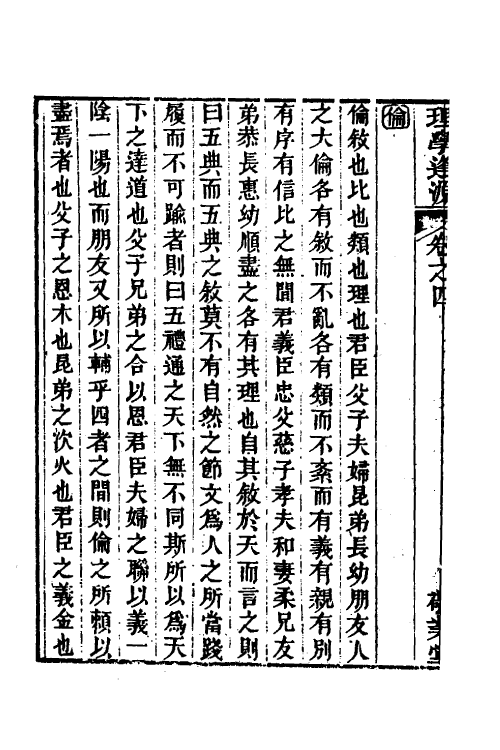 理學逢源 卷之四
倫
倫敘也比也類也理也君臣父子夫婦昆弟長幼朋友人
之大倫各有敘而不亂各有類而不紊而有義有親有別
有序有信比之無間君義臣忠父慈子孝夫和妻柔兄友
弟恭長惠幼順盡之各有其理也自其敘於天而言之則
曰五典而五典之敘莫不有自然之節文爲人之所當踐
履而不可踰者則曰五禮通之天下無不同斯所以爲天
下之達道也父子兄弟之合以恩君臣夫婦之聯以義一
陰一陽也而朋友又所以輔乎四者之間則倫之所頼以
盡焉者也父子之恩木也昆弟之次火也君臣之義金也